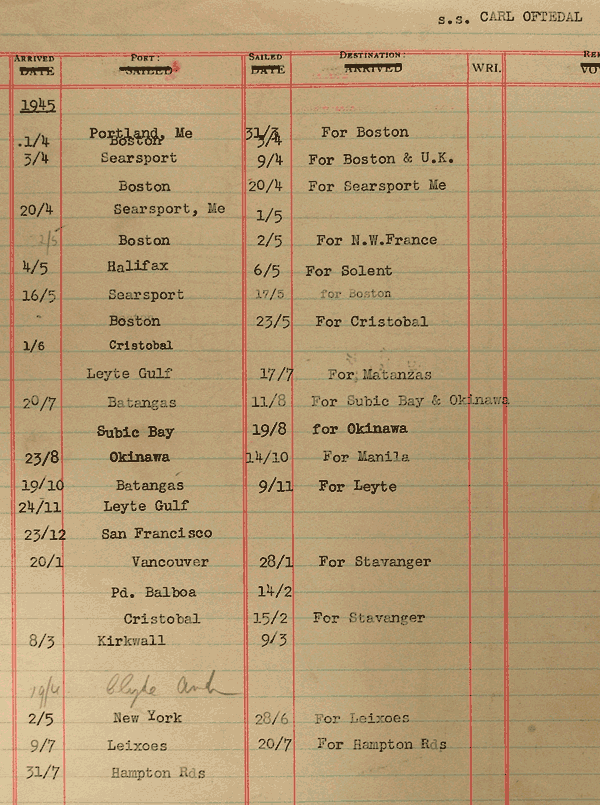 s.s. CARL OFTEDAL
ARRIVED DATE PORT: SAILED SAILED DATE DESTINATION: ARRIVED WRI.
1945
Portland, Me 31/3 For Boston
.1/4 Boston 3/4
3/4 Searsport 9/4 For Boston & U.K.
Boston 20/4 For Searsport Me
20/4 Searsport, Me 1/5
2/5 Boston 2/5 For N.W.France
4/5 Halifax 6/5 For Solent
16/5 Searsport 17/5 for Boston
Boston 23/5 For Cristobal
1/6 Cristobal
Leyte Gulf 17/7 For Matanzas
20/7 Batangas 11/8 For Subic Bay & Okinawa
Subic Bay 19/8 for Okinawa
23/8 Okinawa 14/10 For Manila
19/10 Batangas 9/11 For Leyte
24/11 Leyte Gulf
23/12 San Francisco
20/1 Vancouver 28/1 For Stavanger
Pd. Balboa 14/2
Cristobal 15/2 For Stavanger
8/3 Kirkwall 9/3
19/4 Clyde Anch
2/5 New York 28/6 For Leixoes
9/7 Leixoes 20/7 For Hampton Rds
31/7 Hampton Rds